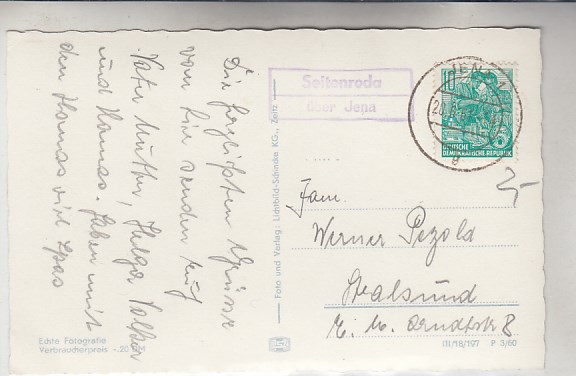 Die herzlichsten Grüsse
von hier senden Euch
Vater Mutti, Helga
und Thomas. Haben mit
den Thomas viel Spas
Echte Fotografie
Verbraucherpreis -.20
Foto und Verlag: Lichtbild-Schincke KG., Zeitz
Seitenroda
über Jena
JENA
10
DEUTSCHE
DEMOKRATISCHE REPUBLIK
Fam.
Werner Pezold
Stralsund
E. M. Arndtstr 8
III/18/197 P 3/60